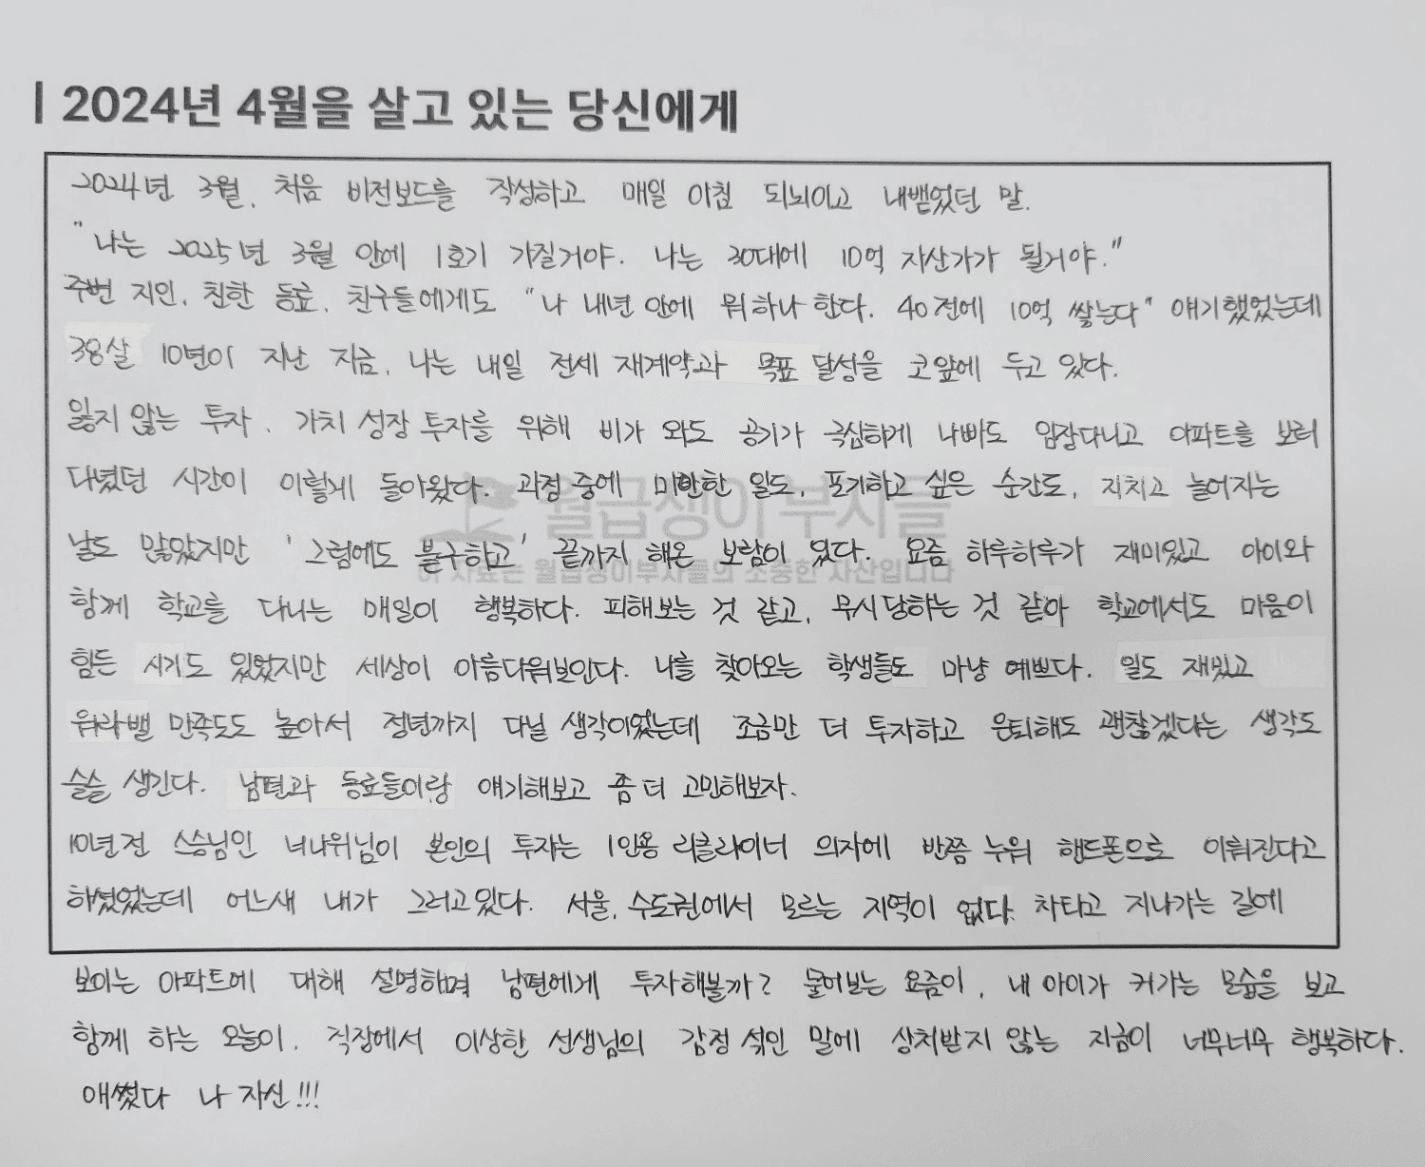 2024년 4월을 살고 있는 당신에게
2024년 3월, 처음 비전보드를 작성하고 매일 아침 되뇌이고 내뱉었던 말.
"나는 2025년 3월 안에 1호기 가질거야. 나는 30대에 10억 자산가가 될거야."
주변 지인, 친한 동료, 친구들에게도 "나 내년 안에 뭐하나 한다. 40전에 10억 쌓는다" 얘기했었는데
38살 10년이 지난 지금, 나는 내일 전세 재계약과 목표 달성을 코앞에 두고 있다.
잃지 않는 투자, 가치 성장 투자를 위해 비가 와도 공기가 극심하게 나빠도 임장다니고 아파트를 보러
다녔던 시간이 이렇게 돌아왔다. 과정 중에 미안한 일도, 포기하고 싶은 순간도, 지치고 늘어지는
월급쟁이부자들
날도 많았지만 '그럼에도 불구하고' 끝까지 해온 보람이 있다. 요즘 하루하루가 재미있고 아이와
이 자료는 월급쟁이부자들의 소중한 자산입니다
함께 학교를 다니는 매일이 행복하다. 피해보는 것 같고, 무시당하는 것 같아 학교에서도 마음이
힘든 시기도 있었지만 세상이 아름다워보인다. 나를 찾아오는 학생들도 마냥 예쁘다. 일도 재밌고
워라밸 만족도도 높아서 정년까지 다닐 생각이었는데 조금만 더 투자하고 은퇴해도 괜찮겠다는 생각도
슬슬 생긴다. 남편과 동료들이랑 얘기해보고 좀 더 고민해보자.
10년 전 스승님인 너나위님이 본인의 투자는 1인용 리클라이너 의자에 반쯤 누워 핸드폰으로 이뤄진다고
하셨었는데 어느새 내가 그러고있다. 서울, 수도권에서 모르는 지역이 없다. 차타고 지나가는 길에
보이는 아파트에 대해 설명하며 남편에게 투자해볼까? 물어보는 요즘이, 내 아이가 커가는 모습을 보고
함께 하는 오늘이, 직장에서 이상한 선생님의 감정 섞인 말에 상처받지 않는 지금이 너무너무 행복하다.
애썼다 나 자신!!!